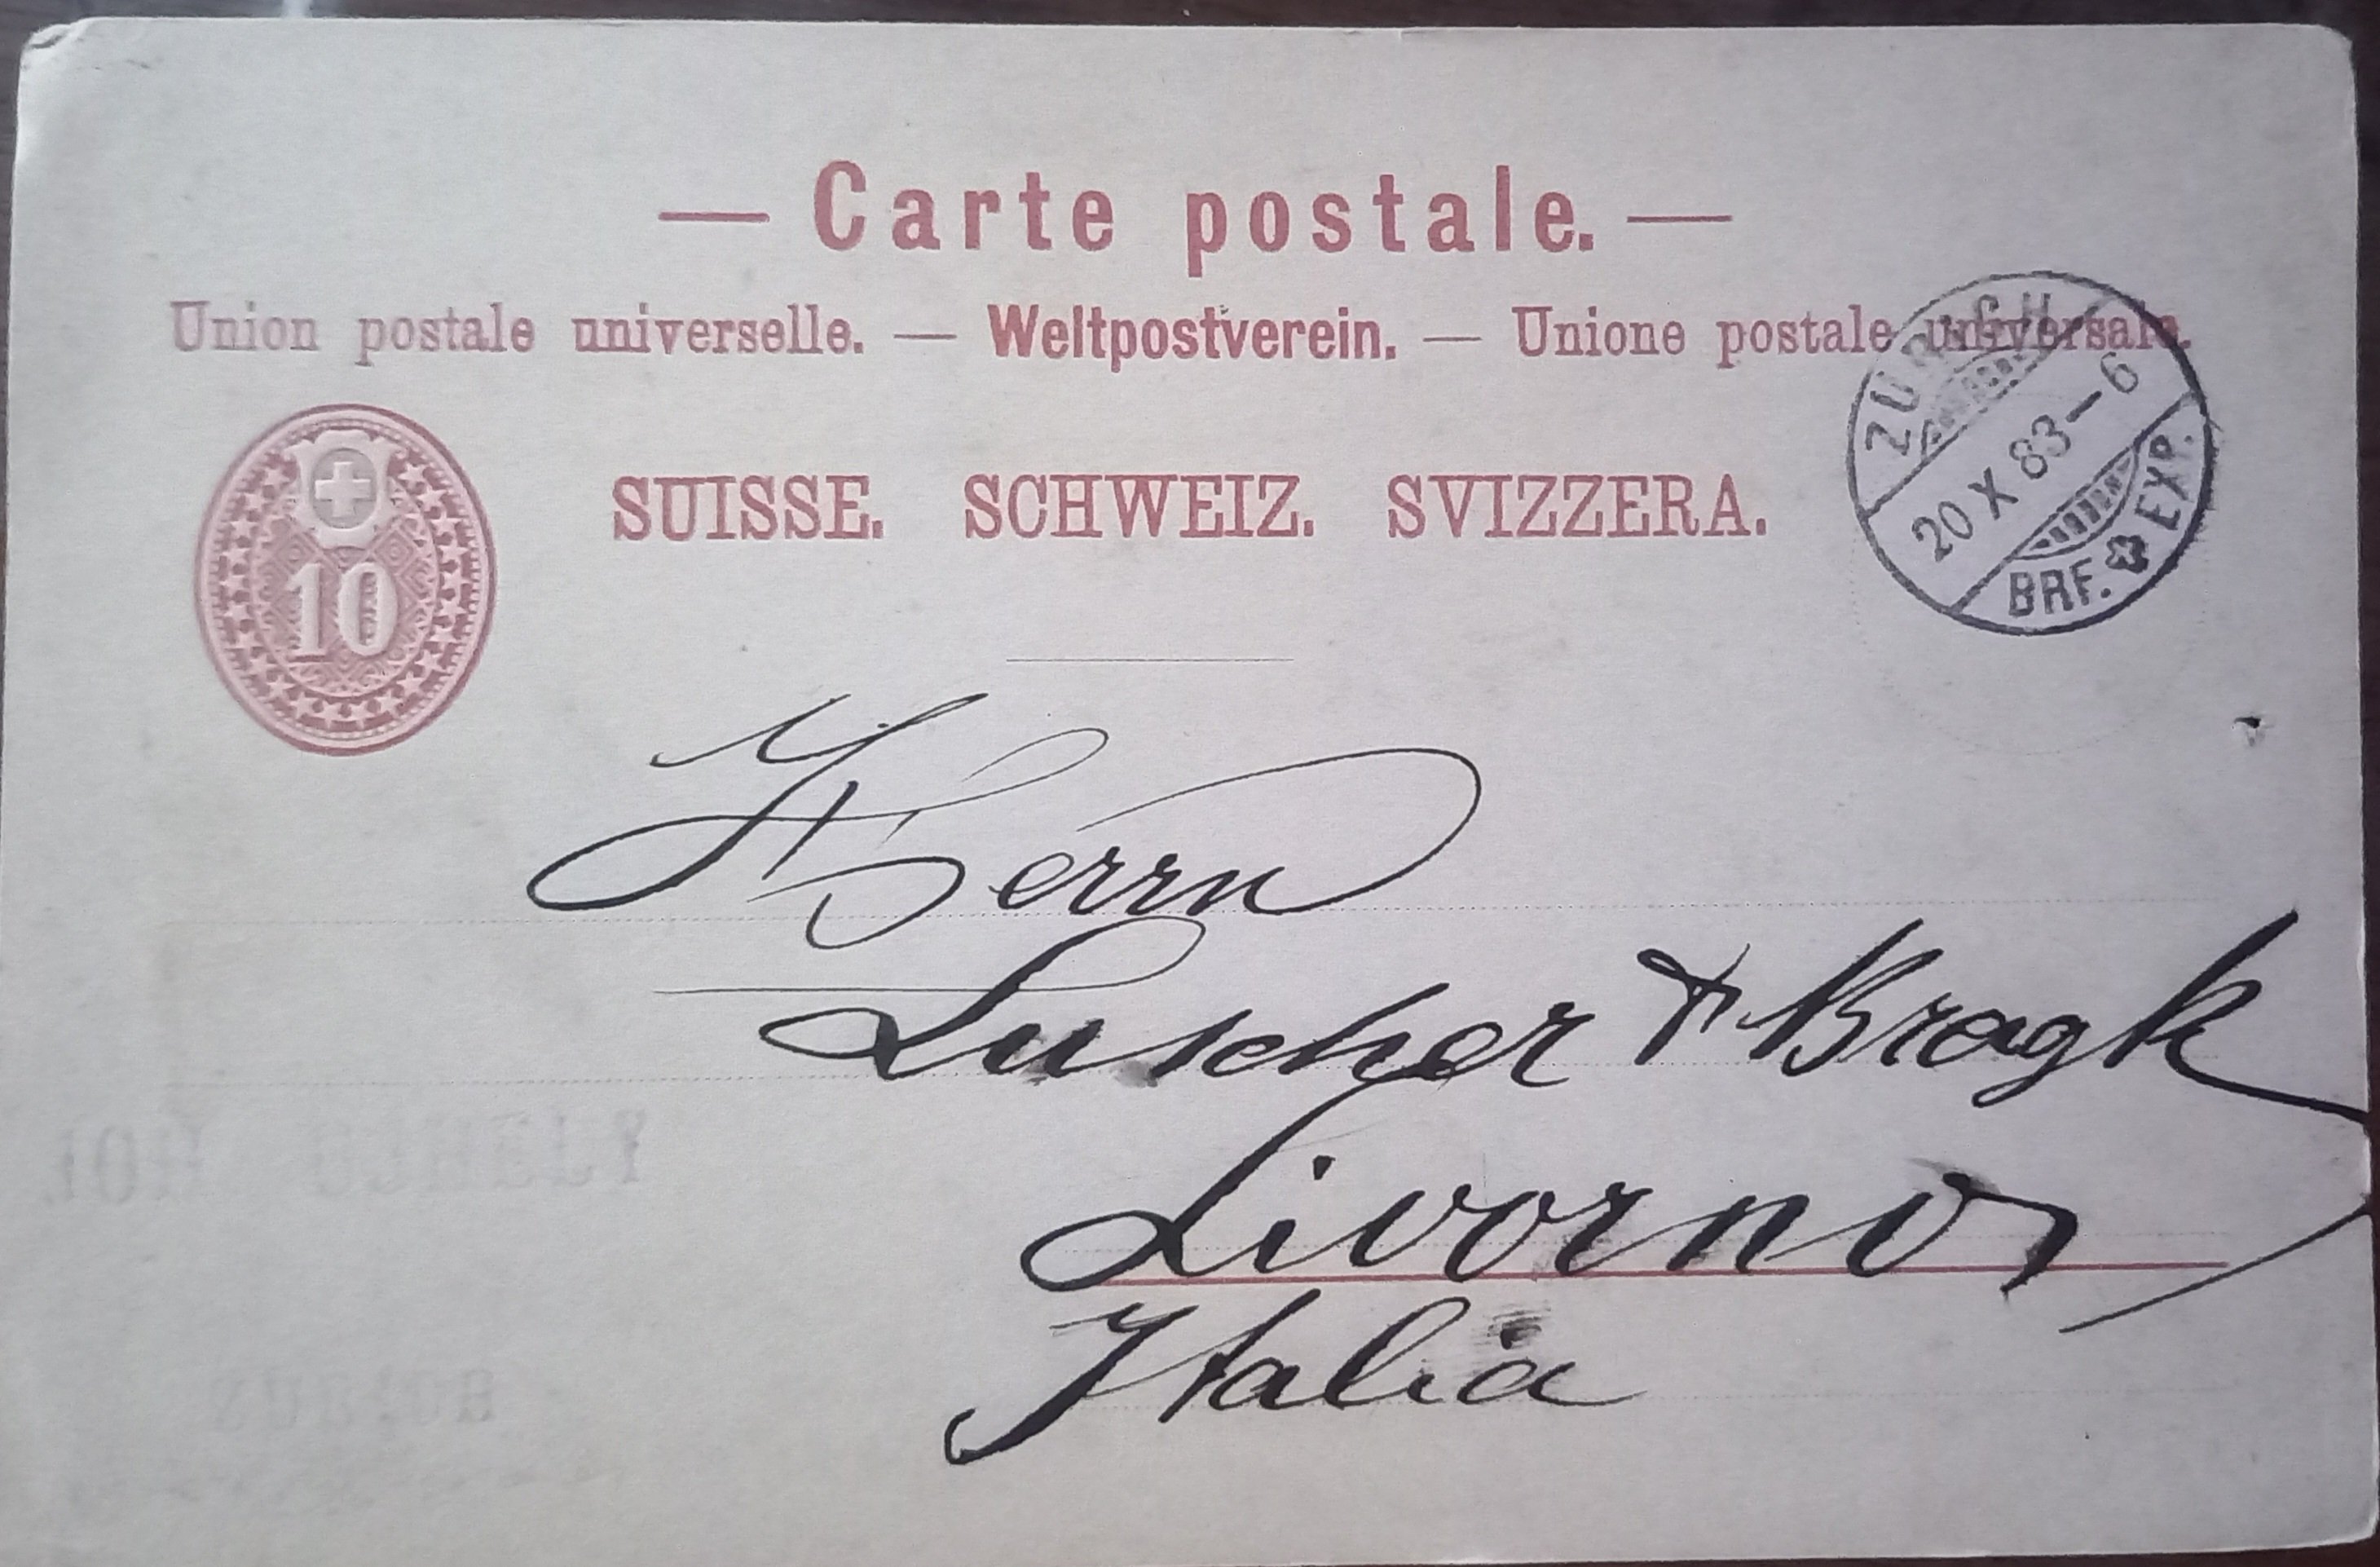 — Carte postale. —
Union postale universelle. — Weltpostverein. — Unione postale universale.
SUISSE. SCHWEIZ. SVIZZERA.
10
ZÜRICH
20 X 83–6
BRF. EXP.
Herrn
Luscher & Bragk
Livorno
Italia